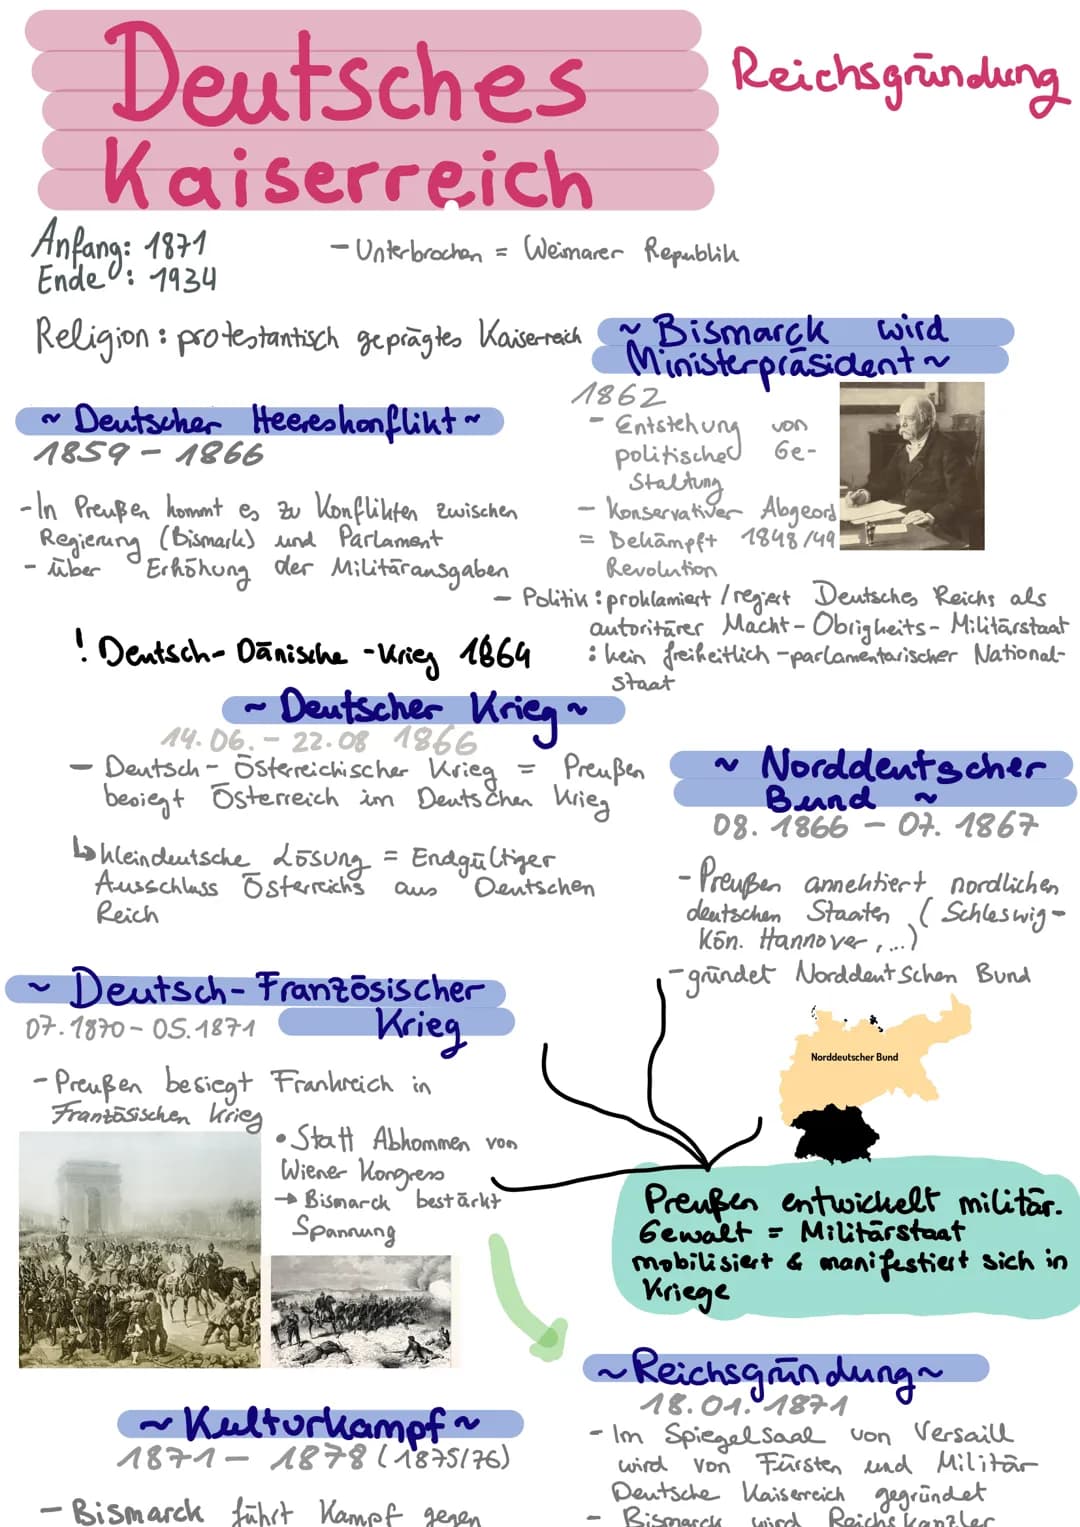 Deutsches
Kaiserreich
Reichsgründung
Anfang: 1871
Ende: 1934
- Unterbrochen = Weimarer Republik
Religion: protestantisch geprägtes Kaiserreich
~ Deutscher Heereskonflikt ~
1859 - 1866
- In Preußen kommt es zu Konflikten zwischen
Regierung (Bismark) und Parlament
- über Erhöhung der Militärausgaben
~ Bismarck wird
Ministerpräsident ~
1862
- Entstehung von
politischer Ge-
staltung
- Konservativer Abgeord
= Bekämpft 1848/49
Revolution
- Politik: proklamiert / regiert Deutsches Reichs als
autoritärer Macht- Obrigkeits- Militärstaat
: kein freiheitlich-parlamentarischer National-
staat
! Deutsch-Dänische-Krieg 1864
~ Deutscher Krieg ~
14.06. - 22.08 1866
- Deutsch-Österreichischer Krieg = Preußen
besiegt Österreich im Deutschen Krieg
↳ kleindeutsche Lösung = Endgültiger
Ausschluss Österreichs aus Deutschen
Reich
~ Norddeutscher
Bund ~
08. 1866 - 07. 1867
- Preußen annektiert nordlichen
deutschen Staaten (Schleswig-
Kön. Hannover, ...)
- gründet Norddeutschen Bund
Norddeutscher Bund
~ Deutsch-Französischer
Krieg
07.1870 - 05.1871
- Preußen besiegt Frankreich in
Französischen Krieg
• Statt Abkommen von
Wiener Kongress
→ Bismarck bestärkt
Spannung
Preußen entwickelt militär.
Gewalt = Militärstaat
mobilisiert & manifestiert sich in
Kriege
~ Reichsgründung ~
18.01.1871
- Im Spiegelsaal von Versaill
wird von Fürsten und Militär
Deutsche Kaiserreich gegründet
- Bismarck wird Reichskanzler
~ Kulturkampf ~
1871 - 1878 (1875/76)
- Bismarck führt Kampf gegen